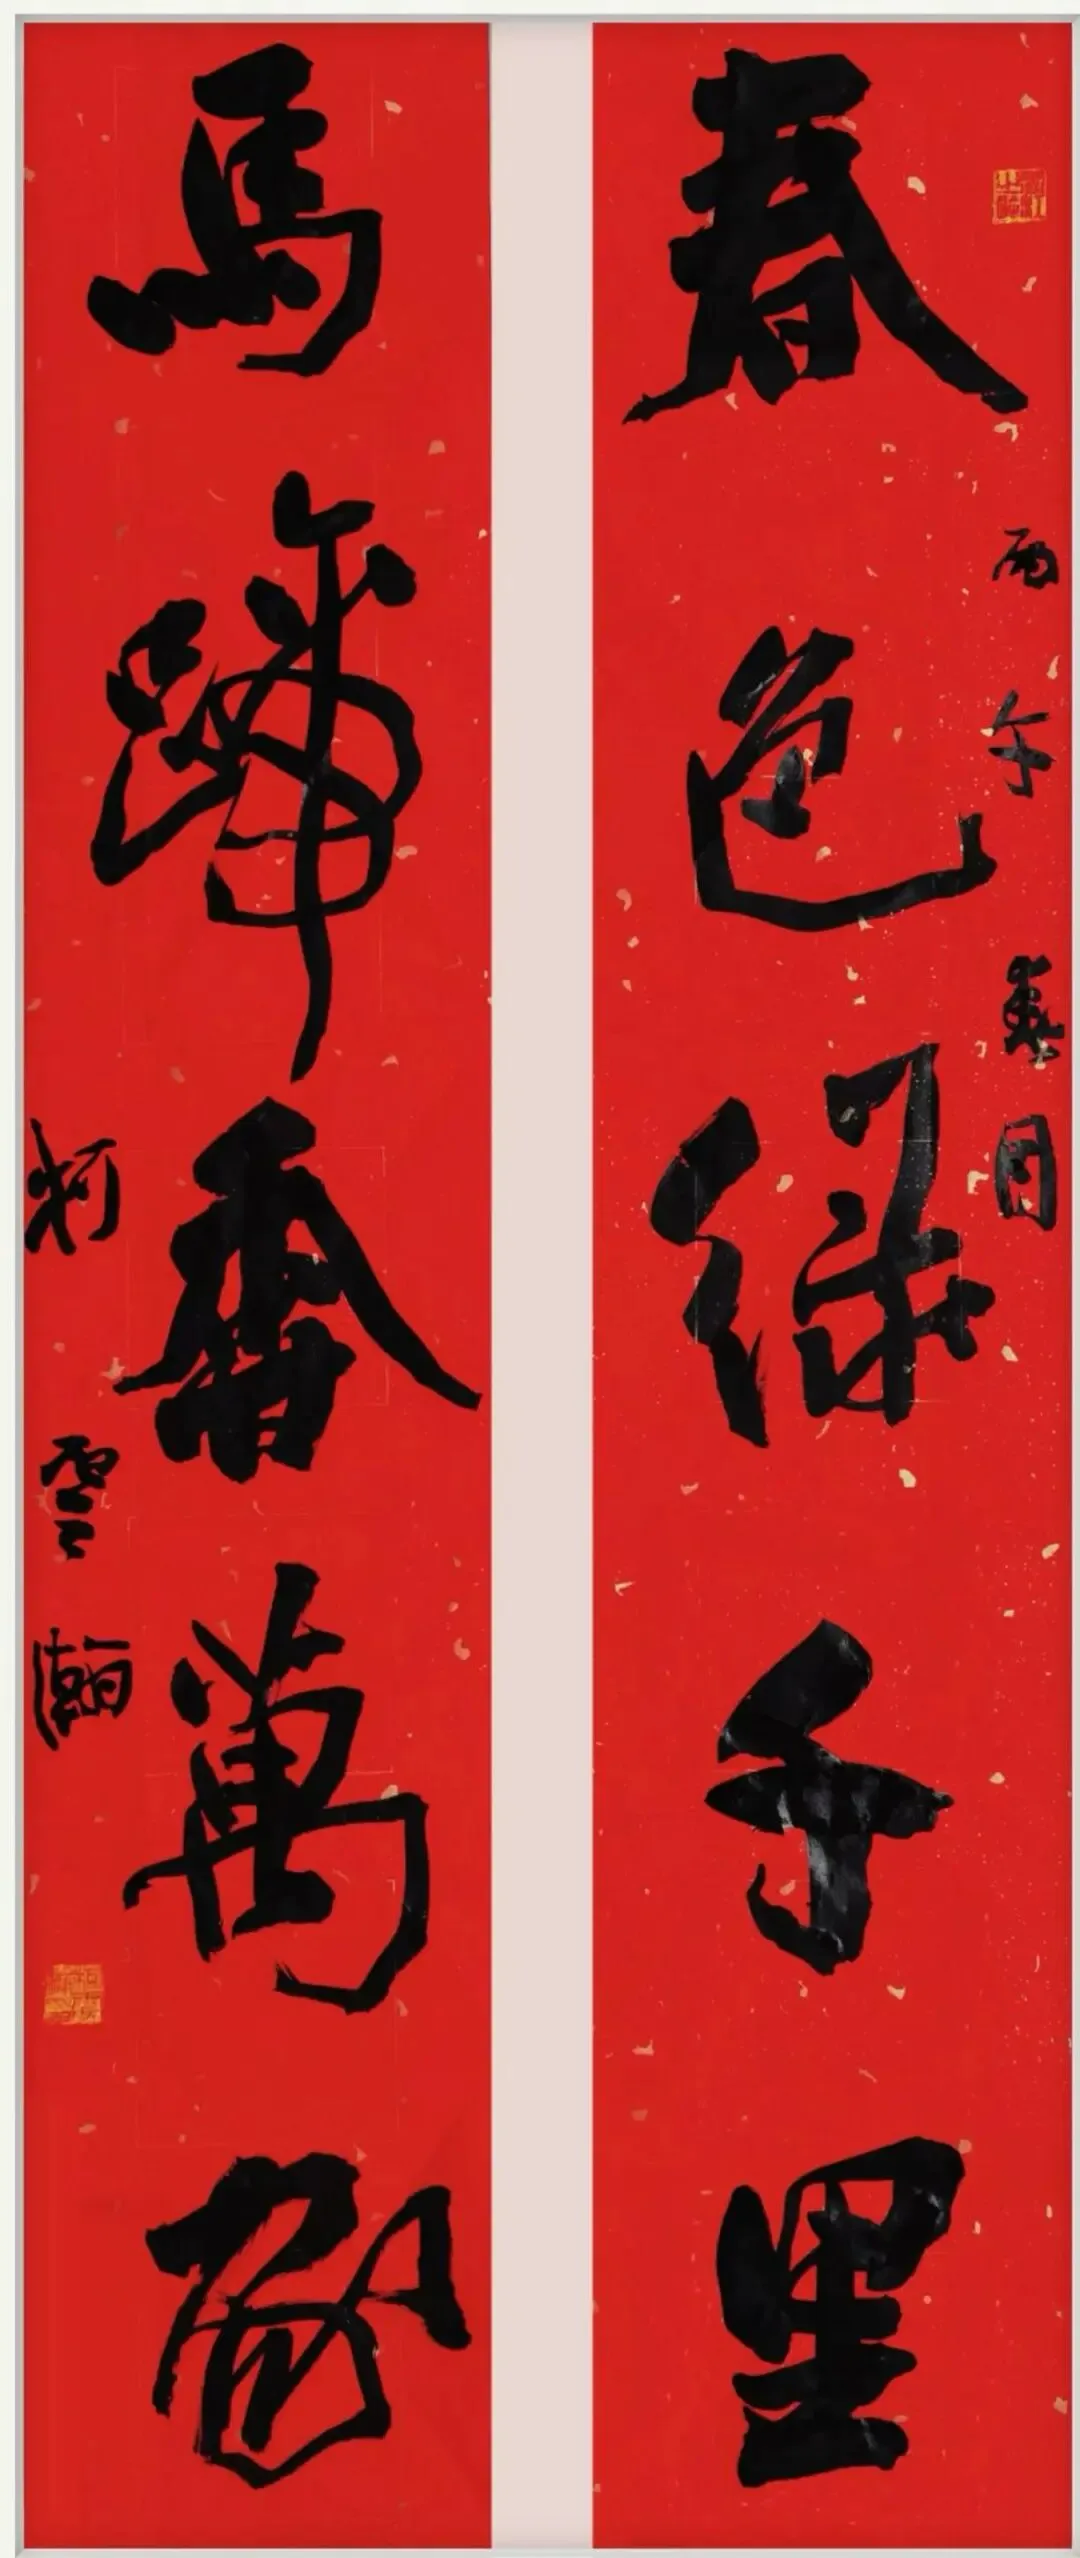 春色綠千里
馬蹄香萬家
丙午
柯雲瀚